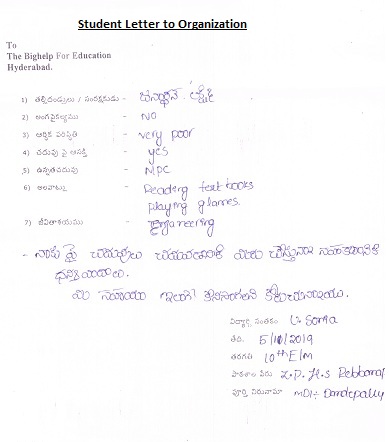 Student Letter to Organization
To
The Bighelp For Education
Hyderabad.
1) తల్లిదండ్రులు / సంరక్షకుడు -
2) అంగవైకల్యము - NO
3) ఆర్థిక పరిస్థితి - very poor
4) చదువు పై ఆసక్తి - yes
5) ఉన్నతచదువు - MPC
6) అలవాట్లు - Reading text books
playing games.
7) జీవితాశయము - Engineering
- నాకు పై చదువులు చదువడానికి మీరు చేస్తున్న సహకారానికి
ధన్యవాదాలు.
మీ సహాయం ఇలాగే కొనసాగాలని కోరుచున్నాము.
విద్యార్థి సంతకం
తేది. 5/10/2019
తరగతి 10th E/M
పాఠశాల పేరు Z.P.H.S
పూర్తి చిరునామా